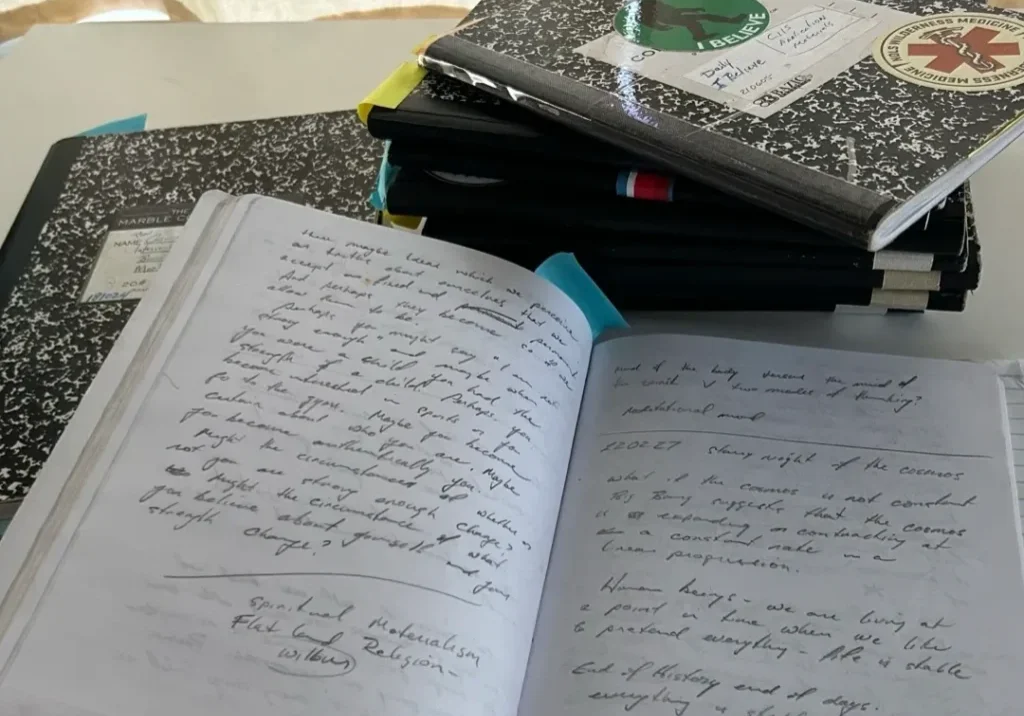 I BELIEVE
CO
Daily
I Believe
CIIS
Application
Materials
210605
WILDERNESS MEDICINE
NOLS WILDERNESS MEDICINE
THE
MARBLE
NAME
maybe ideas which we perceive
as truths about ourselves that we
accept as fixed and permanent
And perhaps they become
allow them to be.
Perhaps you might say "I am not
strong enough" and maybe when
you were a child you had the
strength of a child. Perhaps you
become interested in sports or you
go to the gym. Maybe you become
curious about who you are. Maybe
you become authentically you.
Might the circumstances of whether or
not you are strong enough change?
Might the circumstance of what
you believe about yourself and your
strength change?
Spiritual Materialism
Flat land Religion -
Wilbur
mind of the body versus the mind of
the two modes of thinking?
meditational mind
220227 starry night of the cosmos
what if the cosmos is not constant
Big Bang suggests that the cosmos
is expanding or contracting at
a constant rate in a
linear progression.
Human beings - we are living at
a point in time when we like
to pretend everything - life is stable
End of History end of days.
everything is